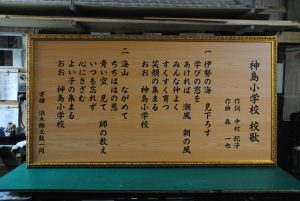 神島小学校 校歌
作詞 中村 紀子
作曲 森 一也
一 伊勢の海 見下ろす
学びの窓を
あければ 潮風 朝の風
みんな仲よく
すくすく育つ
笑顔の集まる
おお 神島小学校
二 海山 ながめて
ちちははの恩
青い空 見て 師の教え
いつも忘れず
心にきざむ
よい子の集まる
おお 神島小学校
寄贈
一同